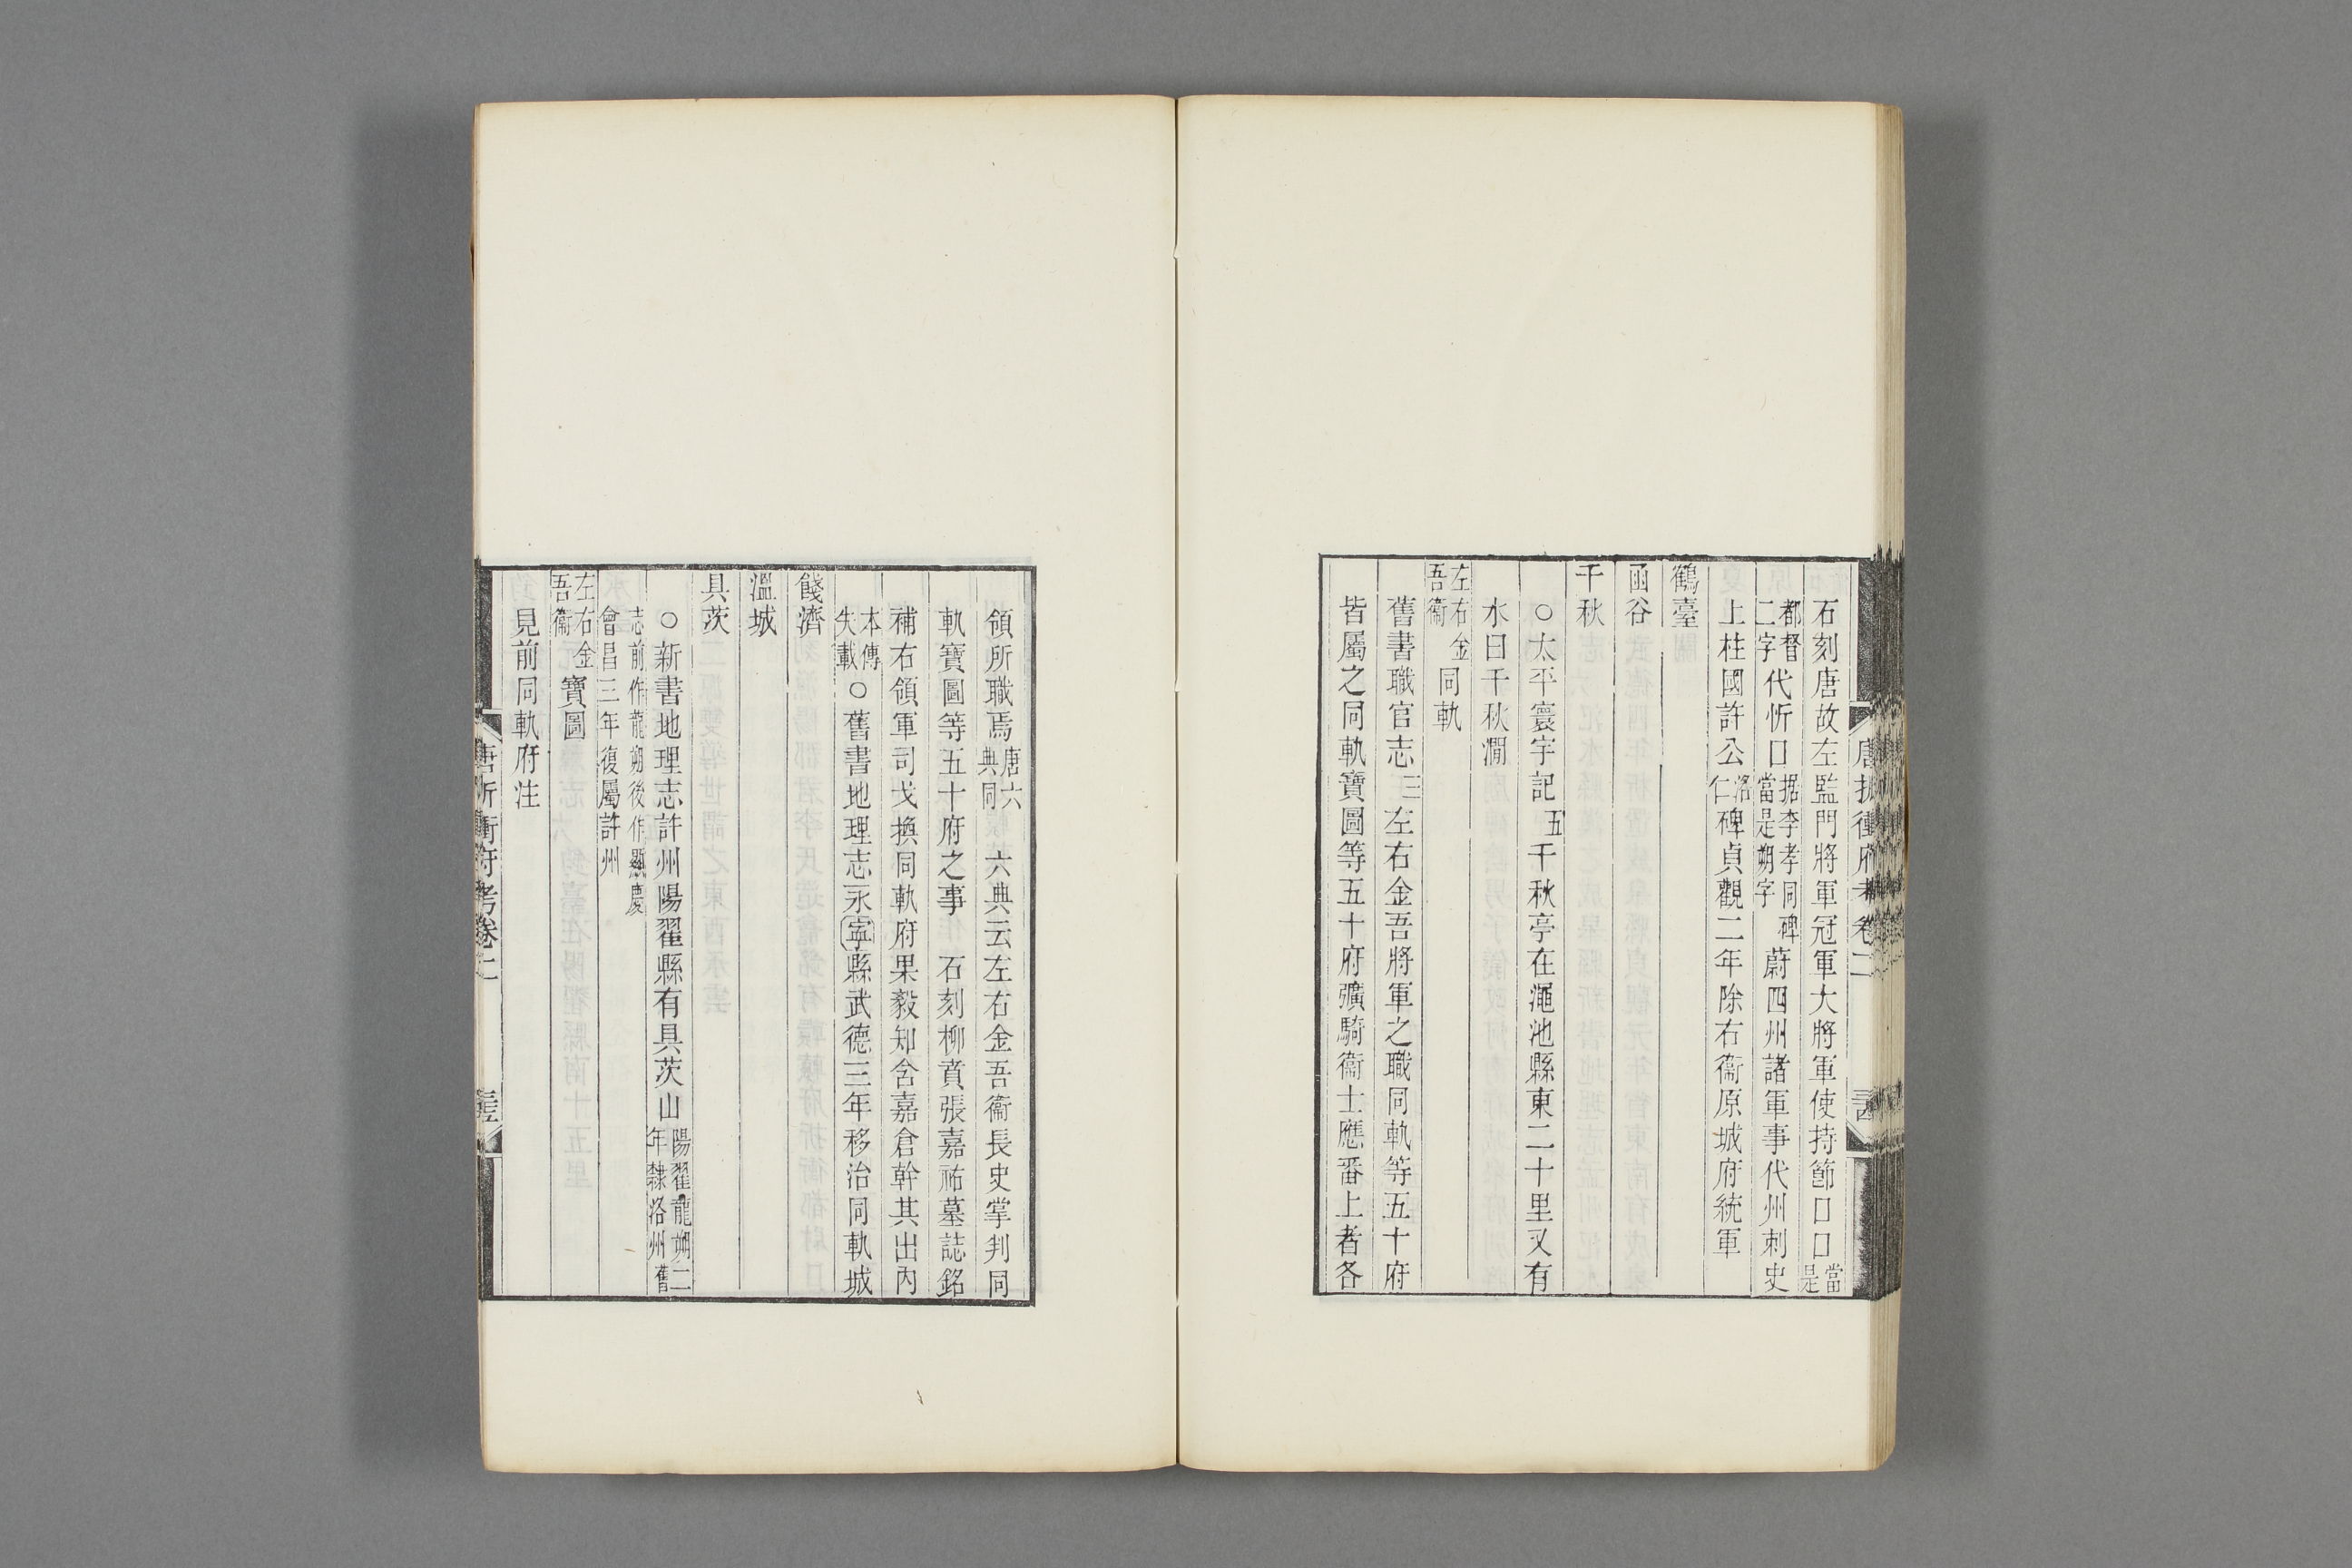 唐折衝府考卷二
石刻唐故左監門將軍冠軍大將軍使持節口口當是
都督二字代忻口据李孝同碑當是朔字蔚四州諸軍事代州刺史
上柱國許公洛仁碑貞觀二年除右衞原城府統軍
鶴臺
函谷
千秋
○太平寰宇記五千秋亭在澠池縣東二十里又有
水曰千秋澗
左右金吾衞同軌
舊書職官志三左右金吾將軍之職同軌等五十府
皆屬之同軌寶圖等五十府彍騎衞士應番上者各
領所職焉唐六典同 六典云左右金吾衞長史掌判同
軌寶圖等五十府之事 石刻柳賁張嘉祐墓誌銘
補右領軍司戈換同軌府果毅知含嘉倉幹其出內
本傳失載○舊書地理志永寍縣武德三年移治同軌城
餞濟
溫城
具茨
○新書地理志許州陽翟縣有具茨山陽翟龍朔二年隸洛州舊
志前作龍朔後作顯慶會昌三年復屬許州
左右金吾衞寶圖
見前同軌府注
唐折衝府考卷二